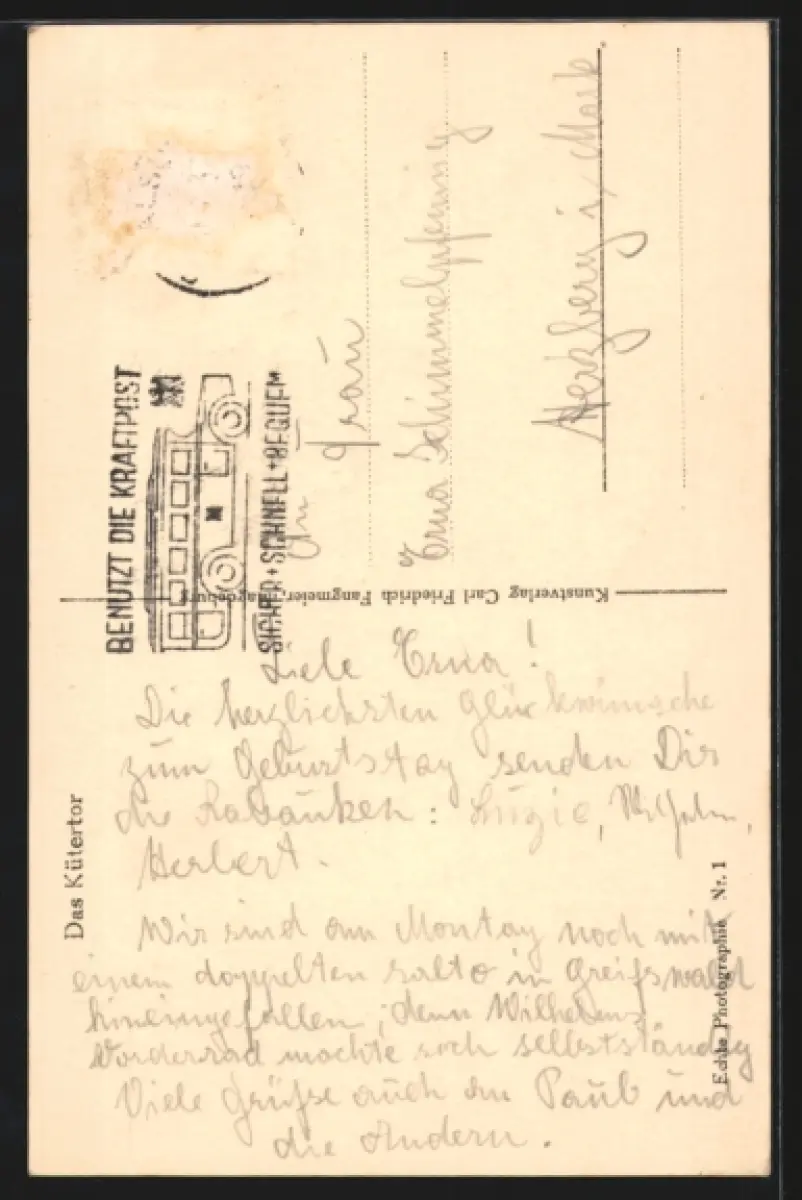 BENUTZT DIE KRAFTPOST
SICHER+SCHNELL+BEQUEM
An Frau
Erna Schimmelpfennig
Herzberg i/Mark
Kunstverlag Carl Friedrich Fangmeier, Magdeburg
Das Kütertor
Echte Photographie Nr. 1
Liebe Erna!
Die herzlichsten Glückwünsche
zum Geburtstag senden Dir
die Rabauken: Luzie, Wilhelm,
Herbert.
Wir sind am Montag noch mit
einem doppelten Salto in Greifswald
hineingefallen, denn Wilhelms
Vorderrad machte sich selbstständig
Viele Grüße auch an Paul und
die Andern.